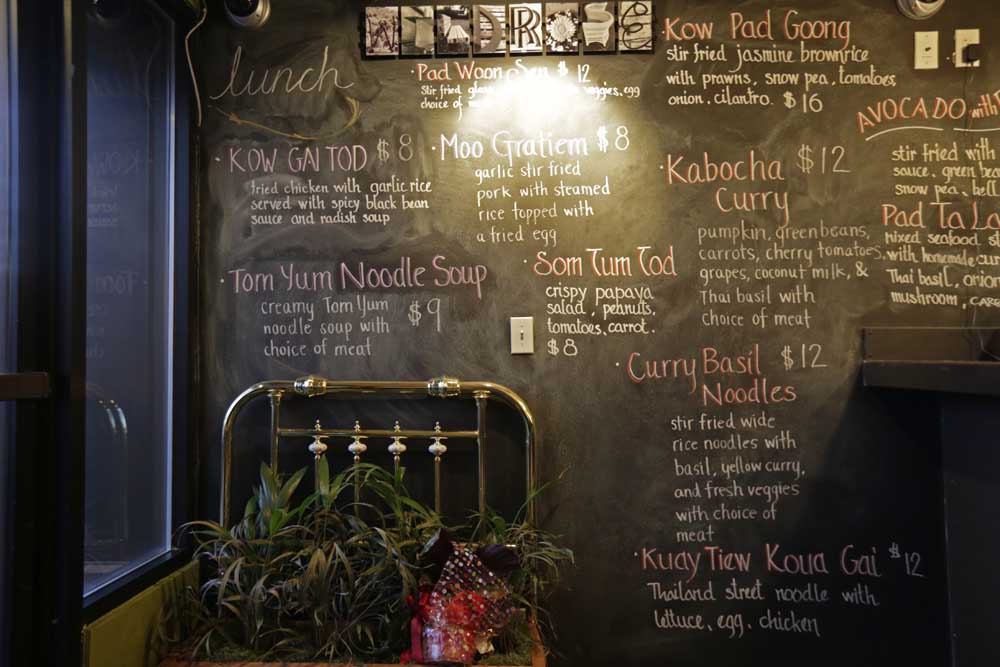 lunch
· KOW GAI TOD $8
fried chicken with garlic rice
served with spicy black bean
sauce and radish soup
· Tom Yum Noodle Soup
creamy Tom Yum $9
noodle soup with
choice of meat
· Pad Woon Sen $12
stir fried veggies, egg
choice of
· Moo Gratiem $8
garlic stir fried
pork with steamed
rice topped with
a fried egg
· Som Tum Tod
crispy papaya
salad, peanuts,
tomatoes, carrot.
$8
Kow Pad Goong
stir fried jasmine brownrice
with prawns, snow pea, tomatoes,
onion, cilantro. $16
· Kabocha $12
Curry
pumpkin, green beans,
carrots, cherry tomatoes,
grapes, coconut milk, &
Thai basil with
choice of meat
· Curry Basil $12
Noodles
stir fried wide
rice noodles with
basil, yellow curry,
and fresh veggies
with choice of
meat
· Kuay Tiew Koua Gai $12
Thailand street noodle with
lettuce, egg, chicken
AVOCADO with
stir fried with
sauce, green
snow pea,
Pad Ta
mixed seafood
with homemade
Thai basil,
mushroom,